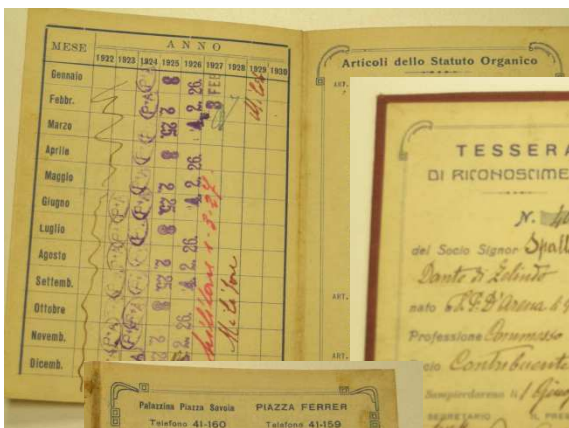 MESE
ANNO
1922 1923 1924 1925 1926 1927 1928 1929 1930
Gennaio
Febbr.
Marzo
Aprile
Maggio
Giugno
Luglio
Agosto
Settemb.
Ottobre
Novemb.
Dicemb.
8 2 25. 8 2 25. 8 2 25. 8 2 25.
4. 2. 26. 4. 2. 26. 4. 2. 26. 4. 2. 26.
8 FEB
1-3-27
Militare
Articoli dello Statuto Organico
ART.
ART.
ART.
TESSERA
DI RICONOSCIME
N.
del Socio Signor Spall
Dante di Zelindo
nato a S. P. D'Arena li 9
Professione Commesso
cio Contribuente
Sampierdarena li 1 Giug
SEGRETARIO IL PRES
Palazzina Piazza Savoia
Telefono 41-160
PIAZZA FERRER
Telefono 41-159